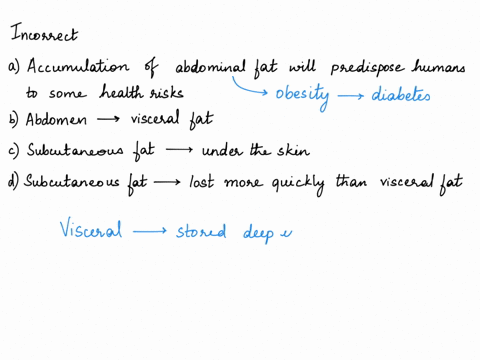 Incorrect
a) Accumulation of abdominal fat will predispose humans
to some health risks
obesity → diabetes
b) Abdomen → visceral fat
c) Subcutaneous fat → under the skin
d) Subcutaneous fat → lost more quickly than visceral fat
Visceral → stored deep